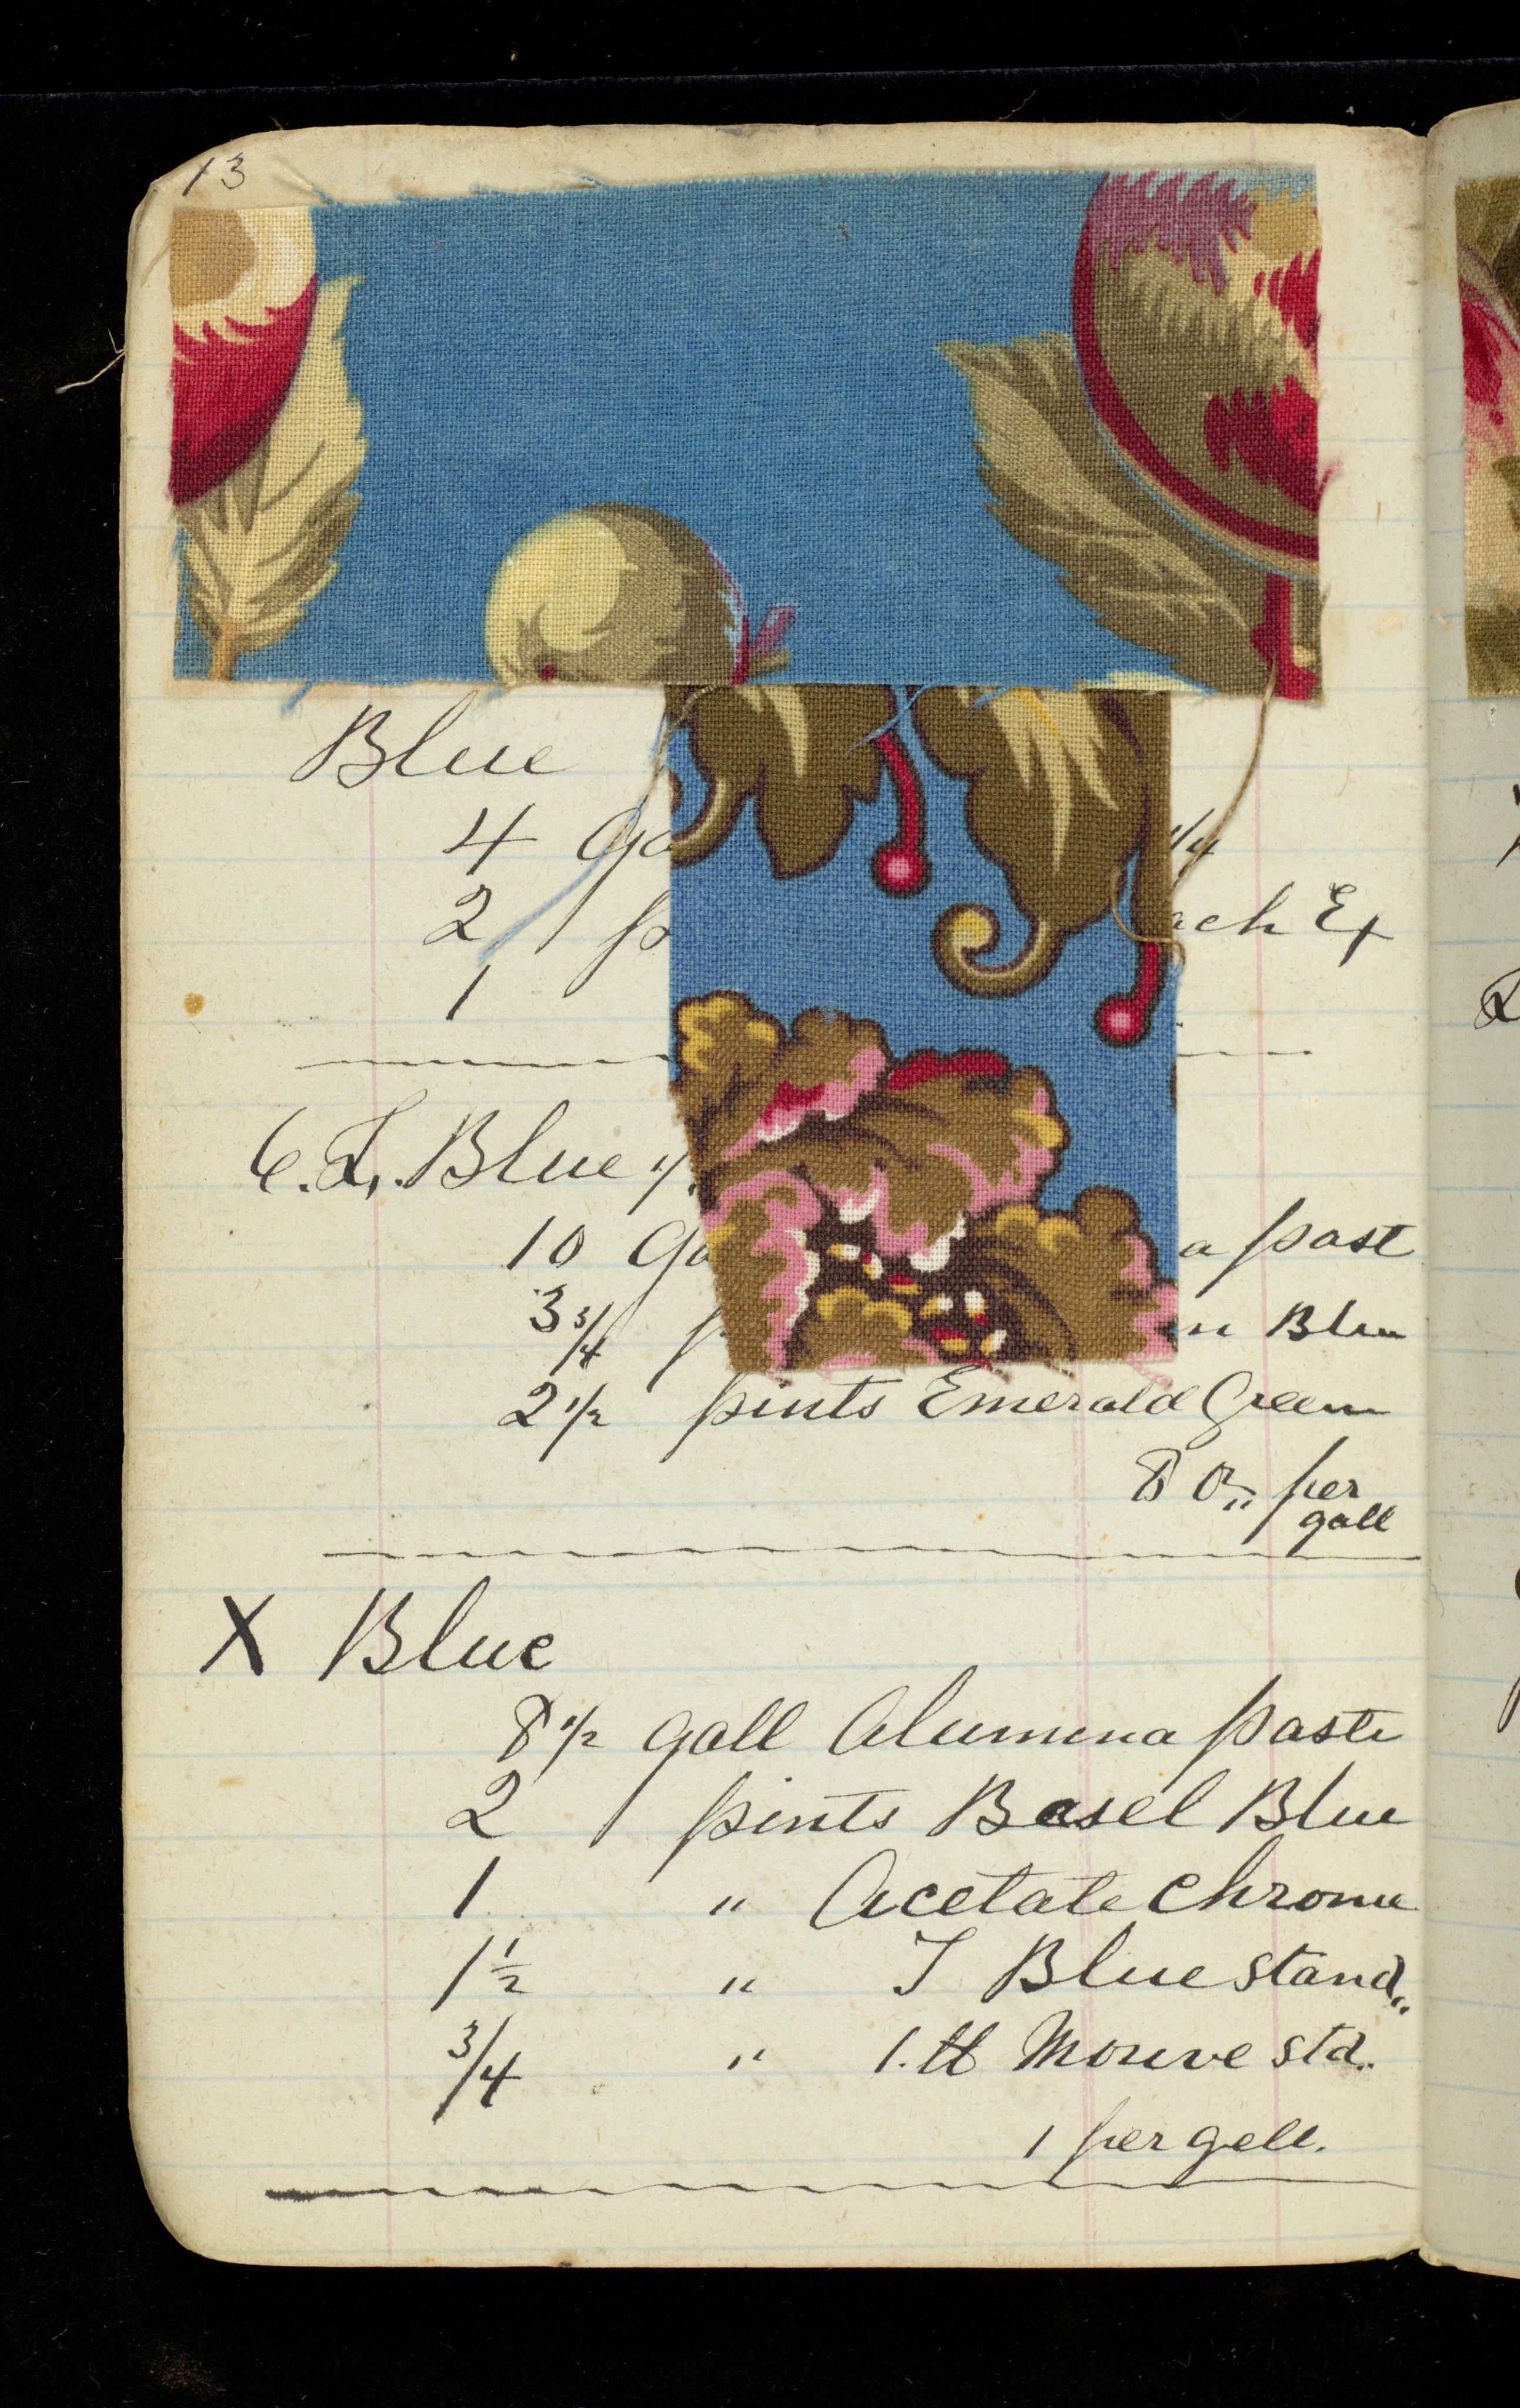 13
Blue
4 1/4
2 Ex
1
Blue
10 a past
3 3/4 Blue
2 1/2 pints Emerald Green
8 oz per
gall
X Blue
8 1/2 gall Alumina paste
2 pints Basel Blue
1 " Acetate Chrome
1 1/2 " Blue stand
3/4 " Mouve std.
1 per gell.